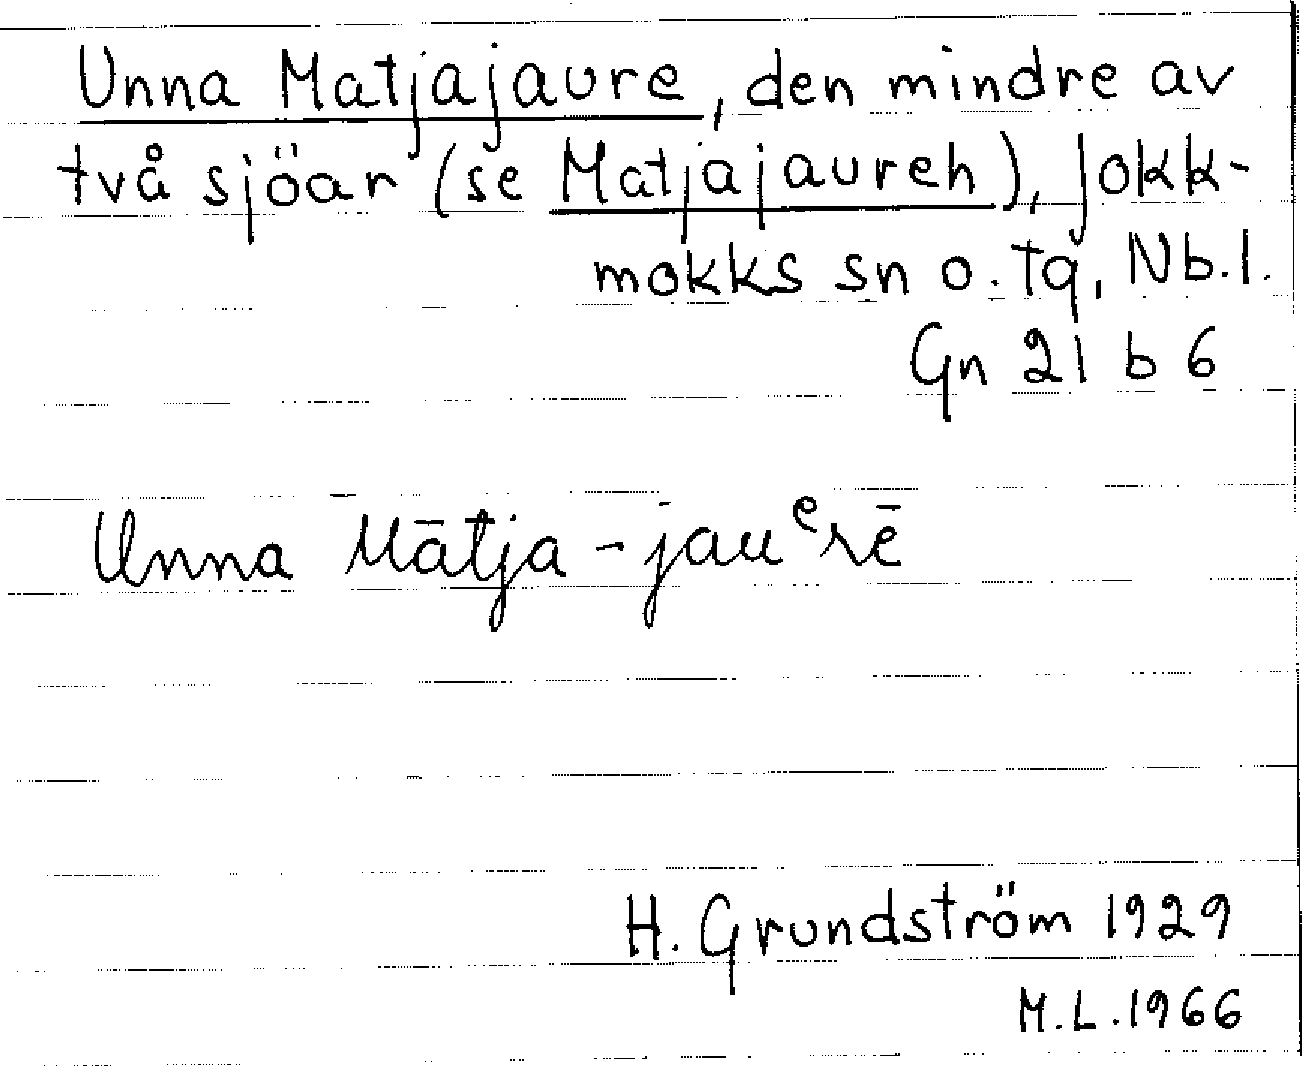 Unna Matjajaure, den mindre av
två sjöar (se Matjajaureh), Jokk-
mokks sn o. tg, Nb.l.
Gn 21 b 6
Unna Mātja-jauᵉrē
H. Grundström 1929
M.L.1966